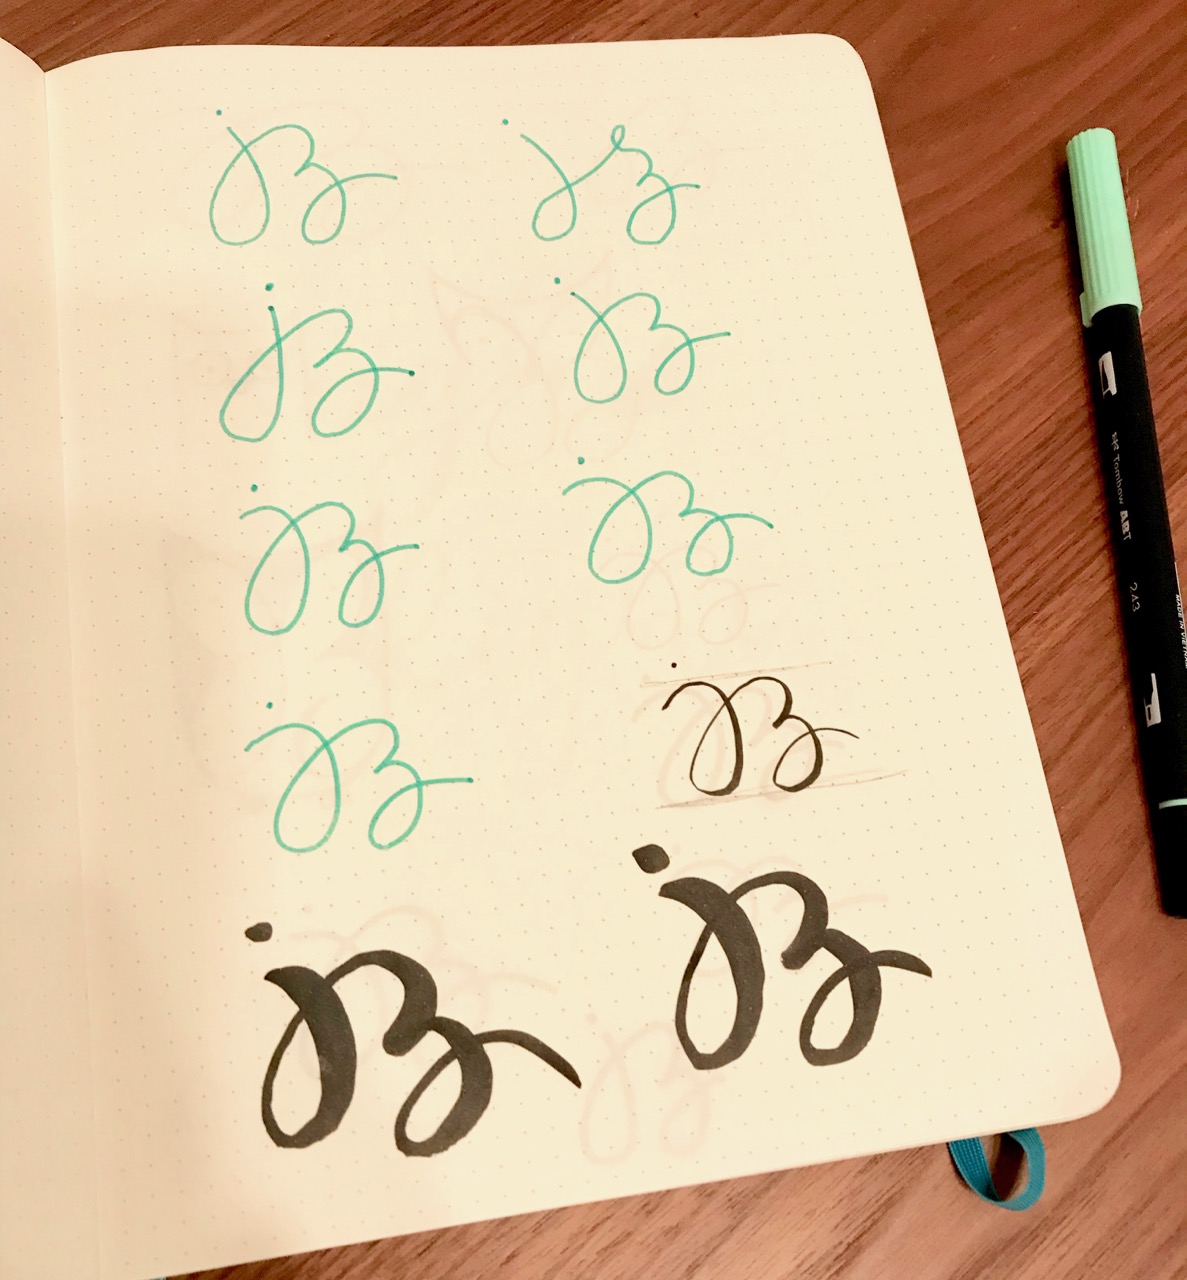 jz jz
jz jz
jz jz
jz jz
jz jz
Tombow ABT 243
MADE IN VIETNAM